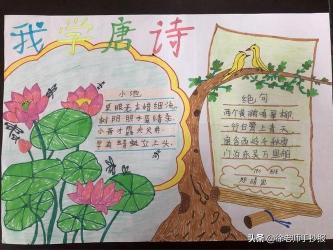 我学唐诗
小池
泉眼无声惜细流
树阴照水爱晴柔
小荷才露尖尖角
早有蜻蜓立上头
绝句
两个黄鹂鸣翠柳
一行白鹭上青天
窗含西岭千秋雪
门泊东吴万里船
头条 @徐老师手抄报